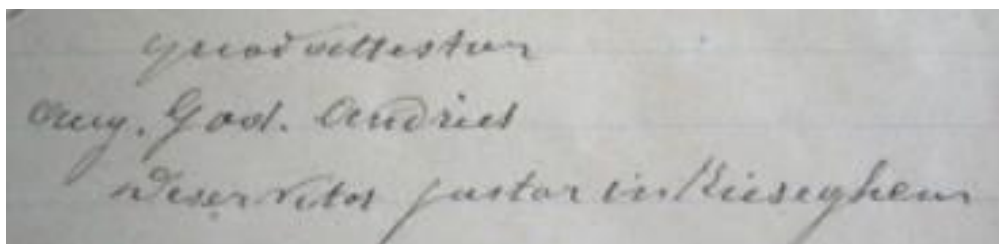 quod attestor
Aug. God. Andries
Deservitor pastor in